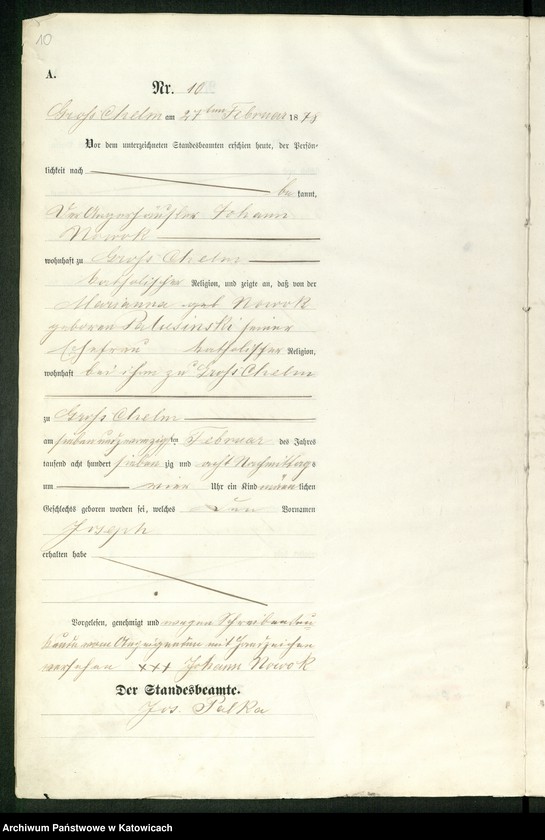 10
A.
Nr. 10
Gross Chelm am 27ten Februar 1878
Vor dem unterzeichneten Standesbeamten erschien heute, der Persön-
lichkeit nach
be kannt,
Der Johann
Nowok
wohnhaft zu Gross Chelm
katholischer Religion, und zeigte an, daß von der
Marianna geb Nowok
geboren Palusinski seiner
Ehefrau katholischer Religion,
wohnhaft bei ihm zu Gross Chelm
zu Gross Chelm
am sieben und zwanzigsten Februar des Jahrs
tausend acht hundert sieben zig und acht Nachmittags
um vier Uhr ein Kind männ lichen
Geschlechts geboren worden sei, welches den Vornamen
Joseph
erhalten habe
Vorgelesen, genehmigt und wegen Schreibens
vom Anzeigenden mit Handzeichen
versehen xxx Johann Nowok
Der Standesbeamte.
Jos. Palka
Archiwum Państwowe w Katowicach